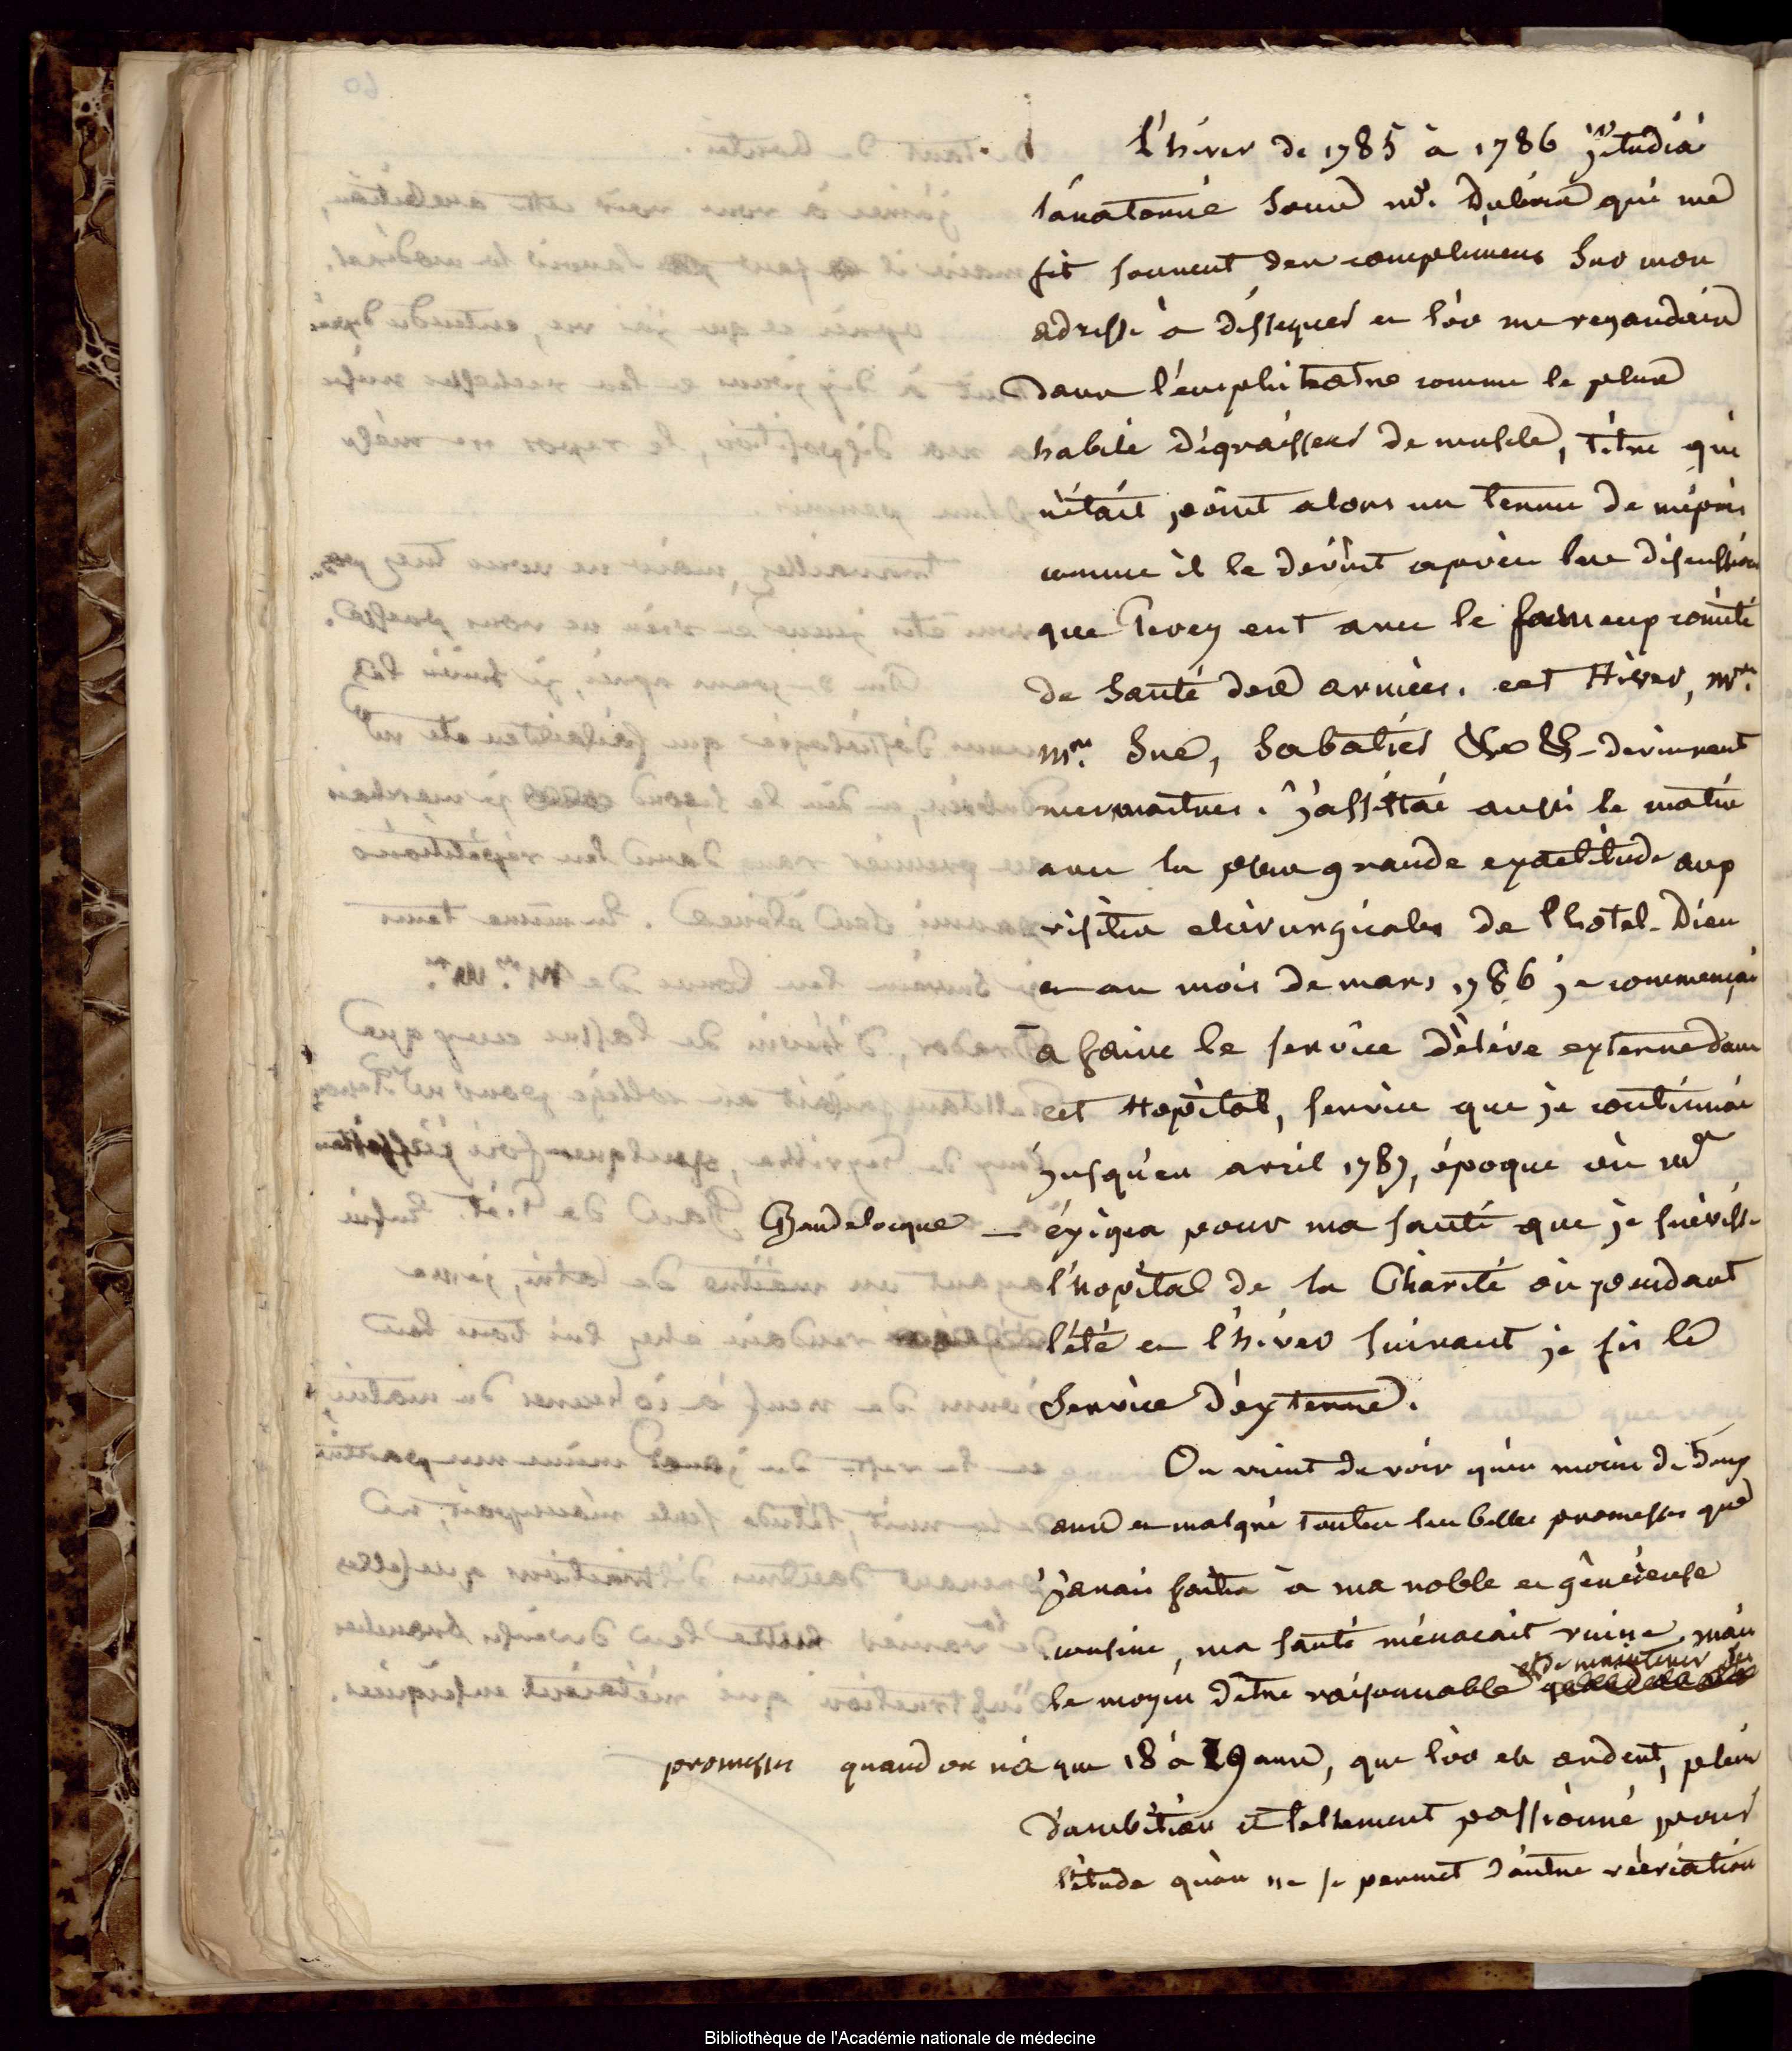 L'hiver de 1785 à 1786 j'étudiai
l'anatomie sous mr. Dubois qui me
fit souvent des complimens sur mon
adresse à disséquer et l'on me regardait
dans l'emphitéatre comme le plus
habile dégraisseur de muscles, titre qui
n'était point alors un terme de mépris
comme il le dévint après la discussion
que Percy eut avec le fameux comité
de santé des armées. cet Hiver, mrs.
mrs. Sue, Sabatier &c &c devinrent
mes maitres. J'assistai aussi le matin
avec la plus grande exactitude aux
visites chirurgicales de l'hotel-Dieu
et au mois de mars 1786 je commençai
a faire le service d'éléve externe dans
cet Hopital, service que je continuai
jusqu'en avril 1787, époque où mr
Baudelocque — éxigea pour ma santé que je suivisse
l'hopital de la Charité où pendant
l'été et l'hiver suivant je fis le
service d'externe.
On vient de voir qu'en moins de deux
ans et malgré toutes les belles promesses que
j'avais faites à ma noble et généreuse
cousine, ma santé ménaçait ruine, mais
le moyen d'être raisonnable et de maintenir ses
promesses quand on n'a que 18 à 19 ans, que l'on est ardent, plein
d'ambition et tellement passionné pour
l'étude qu'on ne se permet d'autre récréation
Bibliothèque de l'Académie nationale de médecine